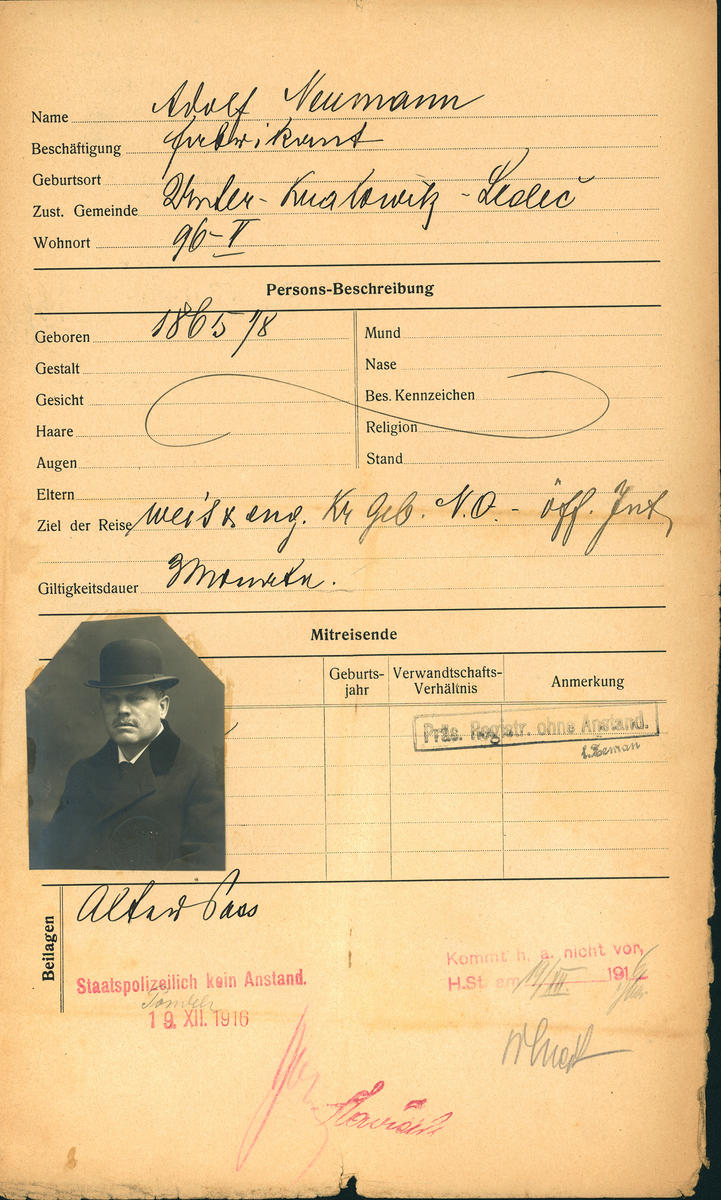 Name Adolf Neumann
Beschäftigung fabrikant
Geburtsort
Zust. Gemeinde Unter-Kralowitz-Ledeč
Wohnort 96-II
Persons-Beschreibung
Geboren 1865 /8
Gestalt
Gesicht
Haare
Augen
Mund
Nase
Bes. Kennzeichen
Religion
Stand
Eltern
Ziel der Reise weit. & eng. Kr Geb. N.O. - öff. Int
Giltigkeitsdauer 3 Monate.
Mitreisende
Geburts-
jahr
Verwandtschafts-
Verhältnis
Anmerkung
Präs. Registr. ohne Anstand.
Zeman
Beilagen
Alter Pass
Staatspolizeilich kein Anstand.
19. XII. 1916
Kommt h. a. nicht vor,
H.St. am 19/XII. 1916